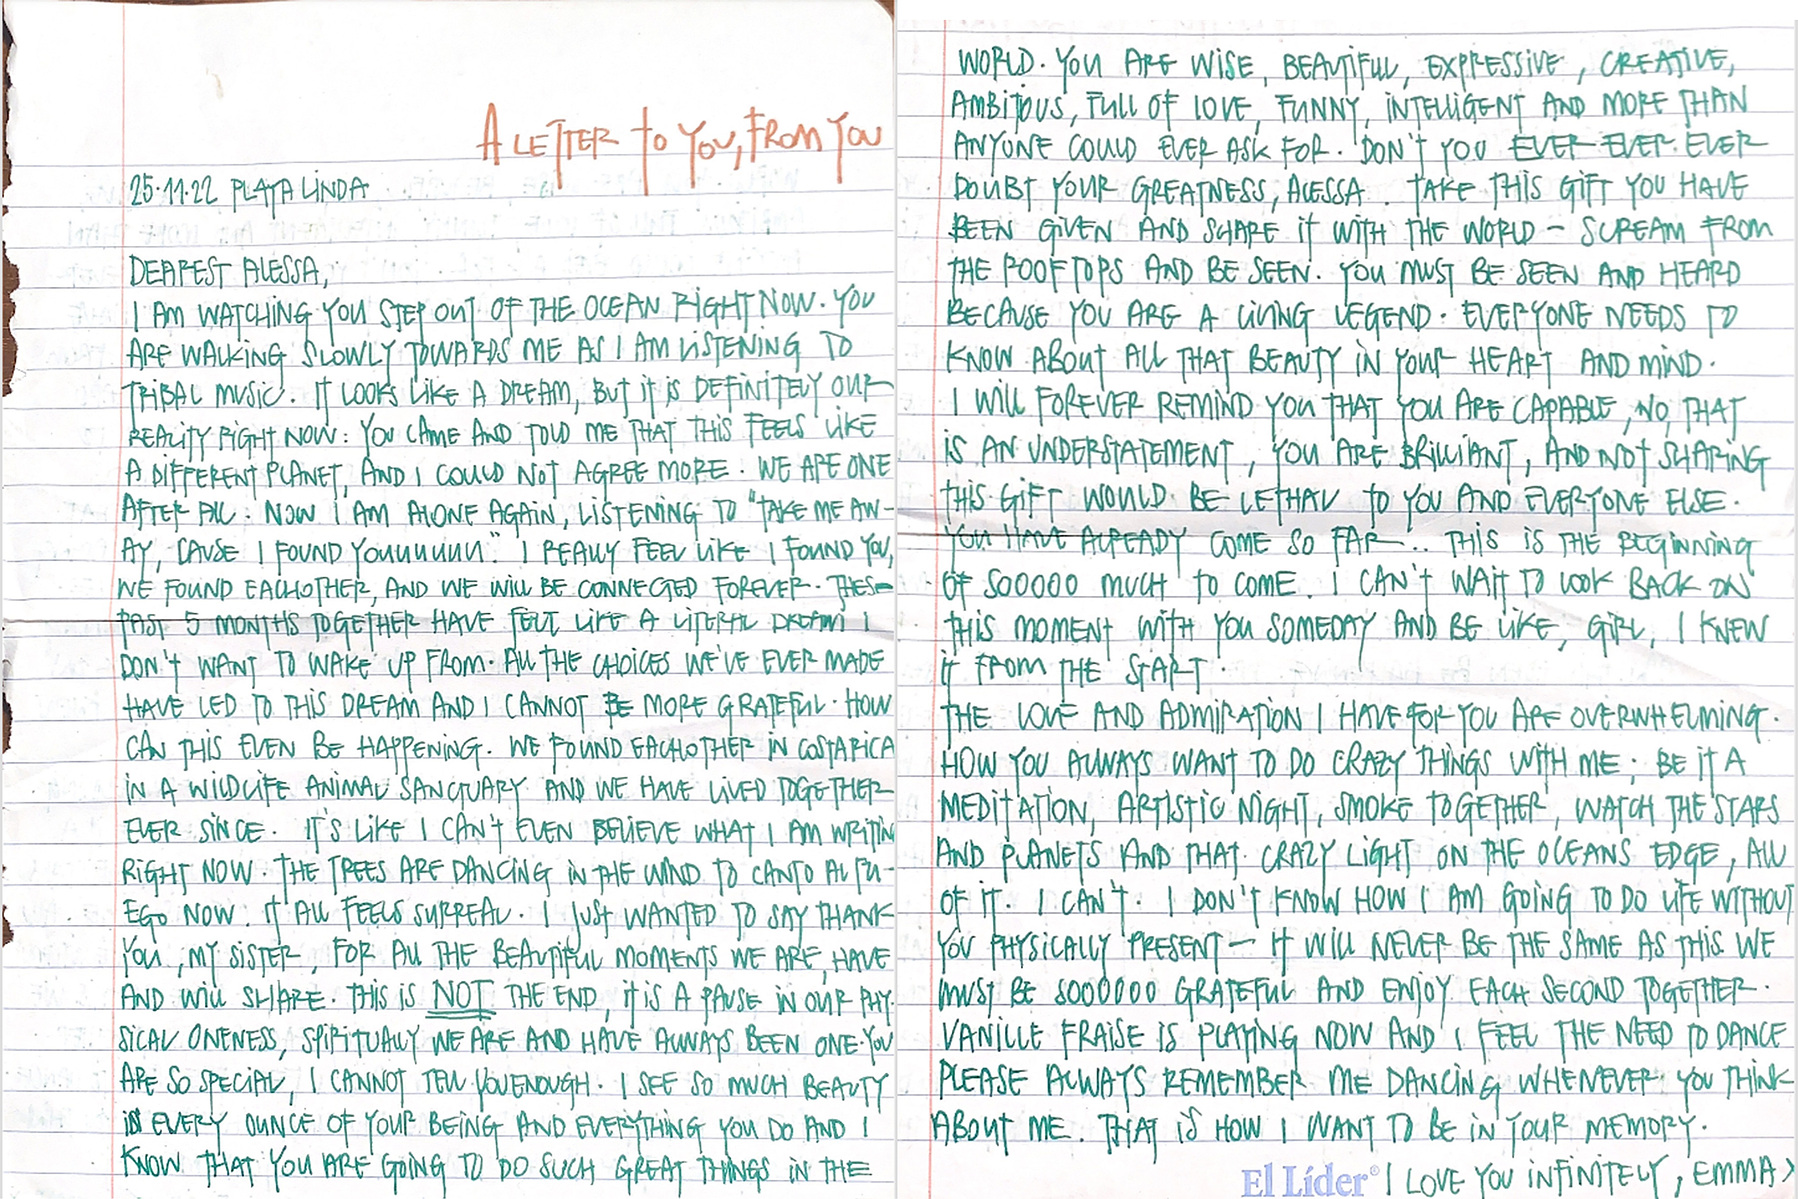 A LETTER to YOU, FROM YOU
25.11.22 PLAYA LINDA
DEAREST ALESSA,
I AM WATCHING YOU STEP OUT OF THE OCEAN RIGHT NOW. YOU
ARE WALKING SLOWLY TOWARDS ME AS I AM LISTENING TO
TRIBAL MUSIC. IT LOOKS LIKE A DREAM, BUT IT IS DEFINITELY OUR
REALITY RIGHT NOW. YOU CAME AND TOLD ME THAT THIS FEELS LIKE
A DIFFERENT PLANET, AND I COULD NOT AGREE MORE. WE ARE ONE
AFTER ALL. NOW I AM ALONE AGAIN, LISTENING TO "TAKE ME AW-
AY, 'CAUSE I FOUND YOUUUUUU." I REALLY FEEL LIKE I FOUND YOU,
WE FOUND EACHOTHER, AND WE WILL BE CONNECTED FOREVER. THESE
PAST 5 MONTHS TOGETHER HAVE FELT LIKE A LITERAL DREAM I
DON'T WANT TO WAKE UP FROM. ALL THE CHOICES WE'VE EVER MADE
HAVE LED TO THIS DREAM AND I CANNOT BE MORE GRATEFUL. HOW
CAN THIS EVEN BE HAPPENING. WE FOUND EACHOTHER IN COSTA RICA
IN A WILDLIFE ANIMAL SANCTUARY AND WE HAVE LIVED TOGETHER
EVER SINCE. IT'S LIKE I CAN'T EVEN BELIEVE WHAT I AM WRITIN
RIGHT NOW. THE TREES ARE DANCING IN THE WIND TO CANTO AL FU-
EGO NOW. IT ALL FEELS SURREAL. I JUST WANTED TO SAY THANK
YOU, MY SISTER, FOR ALL THE BEAUTIFUL MOMENTS WE ARE, HAVE
AND WILL SHARE. THIS IS NOT THE END, IT IS A PAUSE IN OUR PHY-
SICAL ONENESS, SPIRITUALLY WE ARE AND HAVE ALWAYS BEEN ONE. YOU
ARE SO SPECIAL, I CANNOT TELL YOU ENOUGH. I SEE SO MUCH BEAUTY
IN EVERY OUNCE OF YOUR BEING AND EVERYTHING YOU DO AND I
KNOW THAT YOU ARE GOING TO DO SUCH GREAT THINGS IN THE
WORLD. YOU ARE WISE, BEAUTIFUL, EXPRESSIVE, CREATIVE,
AMBITIOUS, FULL OF LOVE, FUNNY, INTELLIGENT AND MORE THAN
ANYONE COULD EVER ASK FOR. DON'T YOU EVER EVER EVER
DOUBT YOUR GREATNESS, ALESSA. TAKE THIS GIFT YOU HAVE
BEEN GIVEN AND SHARE IT WITH THE WORLD - SCREAM FROM
THE ROOFTOPS AND BE SEEN. YOU MUST BE SEEN AND HEARD
BECAUSE YOU ARE A LIVING LEGEND. EVERYONE NEEDS TO
KNOW ABOUT ALL THAT BEAUTY IN YOUR HEART AND MIND.
I WILL FOREVER REMIND YOU THAT YOU ARE CAPABLE, NO, THAT
IS AN UNDERSTATEMENT, YOU ARE BRILLIANT, AND NOT SHARING
THIS GIFT WOULD BE LETHAL TO YOU AND EVERYONE ELSE.
YOU HAVE ALREADY COME SO FAR... THIS IS THE BEGINNING
OF SOOOOO MUCH TO COME. I CAN'T WAIT TO LOOK BACK ON
THIS MOMENT WITH YOU SOMEDAY AND BE LIKE, GIRL, I KNEW
IT FROM THE START.
THE LOVE AND ADMIRATION I HAVE FOR YOU ARE OVERWHELMING.
HOW YOU ALWAYS WANT TO DO CRAZY THINGS WITH ME; BE IT A
MEDITATION, ARTISTIC NIGHT, SMOKE TOGETHER, WATCH THE STARS
AND PLANETS AND THAT CRAZY LIGHT ON THE OCEANS EDGE, ALL
OF IT. I CAN'T. I DON'T KNOW HOW I AM GOING TO DO LIFE WITHOUT
YOU PHYSICALLY PRESENT - IT WILL NEVER BE THE SAME AS THIS WE
MUST BE SOOOOOO GRATEFUL AND ENJOY EACH SECOND TOGETHER.
VANILLE FRAISE IS PLAYING NOW AND I FEEL THE NEED TO DANCE
PLEASE ALWAYS REMEMBER ME DANCING WHENEVER YOU THINK
ABOUT ME. THAT IS HOW I WANT TO BE IN YOUR MEMORY.
El Líder® I LOVE YOU INFINITELY, EMMA